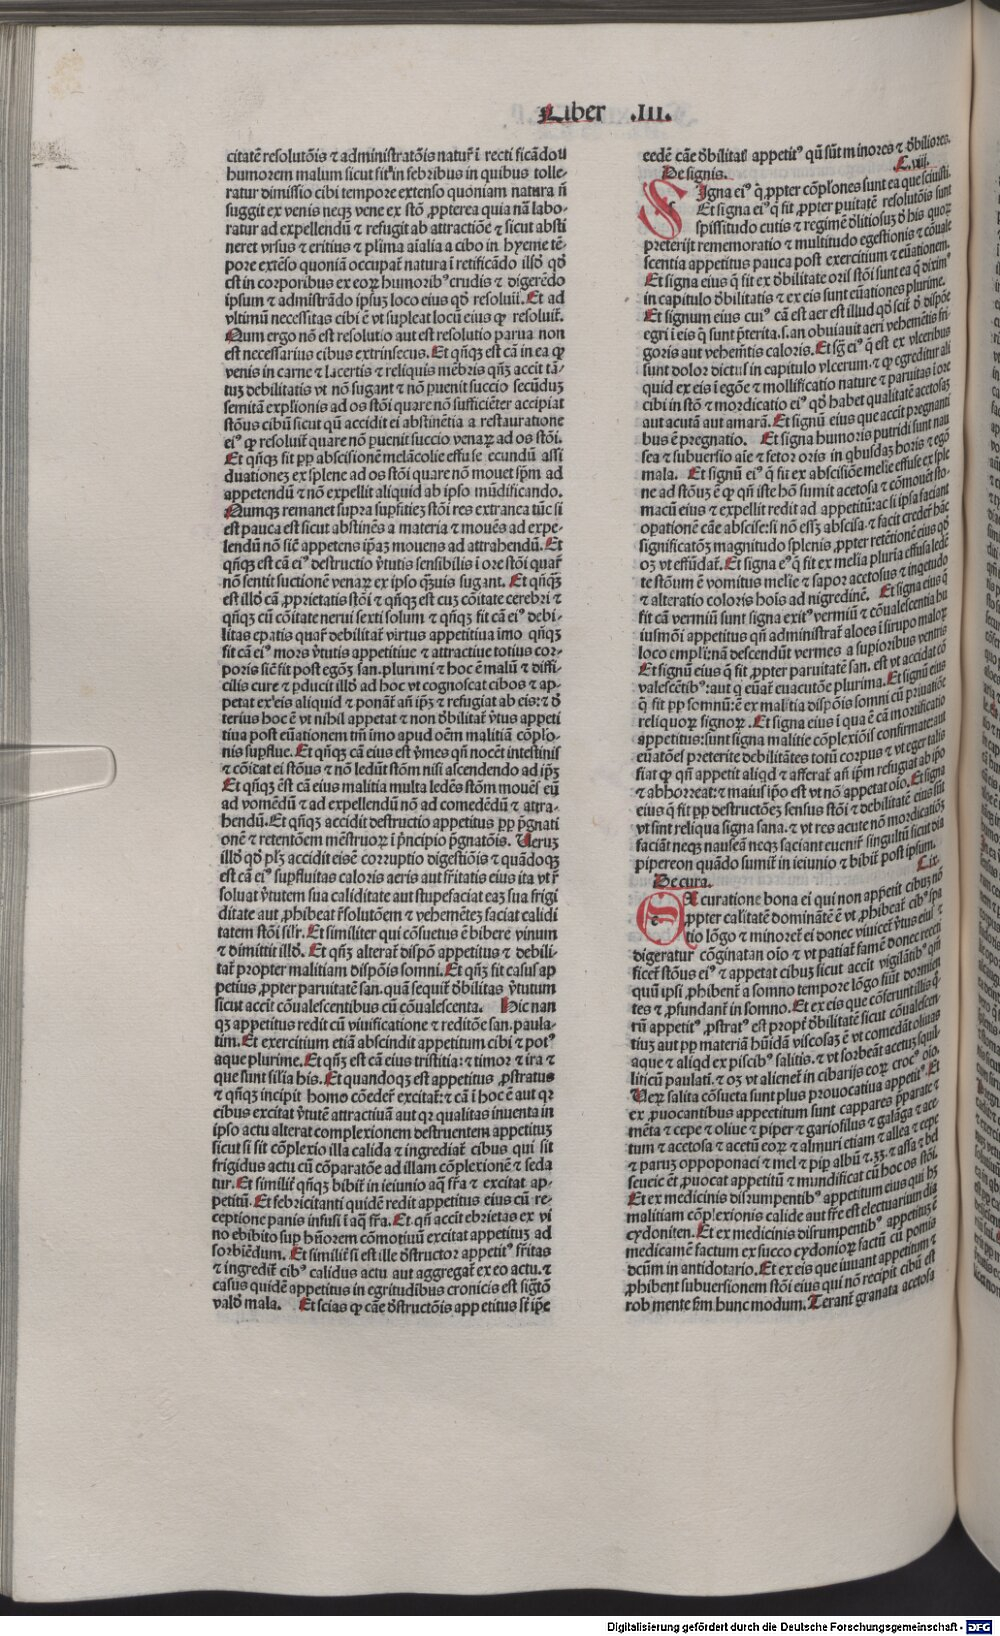 Liber .III.
citatē resolutōis ⁊ administratōis natur̄ ī recti ficādou
humorem malum sicut fit in febribus in quibus tolle-
ratur dimissio cibi tempore extenso quoniam natura n̄
suggit ex venis neqꝫ vene ex stō ꝓpterea quia nā labo-
ratur ad expellendū ⁊ refugit ab attractiōe ⁊ sicut absti
neret vrsus ⁊ eritius ⁊ plīma aīalia a cibo in hyeme tē-
pore extēso quoniā occupat̄ natura ī retificādo illd̄ qd̄
est in corporibus ex eoꝝ humoribꝰ crudis ⁊ digerēdo
ipsum ⁊ admīstrādo ipsuꝫ loco eius qd̄ resoluit̄. Et ad
vltimū necessitas cibi ē vt supleat locū eius qꝫ resoluit̄.
Cum ergo nō est resolutio aut est resolutio parua non
est necessarius cibus extrinsecus. Et qn̄qꝫ est cā in ea qꝫ
venis in carne ⁊ lacertis ⁊ reliquis mēbris qn̄qꝫ accit tā-
tuꝫ debilitatis vt nō sugant ⁊ nō ꝑuenit succio secūduꝫ
semitā explionis ad os stōi quare nō sufficiēter accipiat
stōus cibū sicut qū accidit ei abstinētia a restauratione
eiꝰ qꝫ resoluit̄ quare nō ꝑuenit succio venaꝝ ad os stōi.
Et qn̄qꝫ sit ꝓꝑ abscisionē melācolie effuse ecundū assi
duationeꝫ ex splene ad os stōi quare nō mouet ip̄m ad
appetendū ⁊ nō expellit aliquid ab ipso mūdificando.
Cumqꝫ remanet supra supfitieꝫ stōi res extranea tūc si
est pauca est sicut abstinēs a materia ⁊ mouēs ad expe-
lendū nō sīc appetens ip̄aꝫ mouens ad attrahendū. Et
qn̄qꝫ est cā eiꝰ destructio v̄tutis sensibilis ī ore stōi quar̄
nō sentit suctionē venaꝝ ex ipso qꝫuis sugant. Et qn̄qꝫ
est illd̄ cā ꝓprietatis stōi ⁊ qn̄qꝫ est cuꝫ cōitate cerebri ⁊
qn̄qꝫ cū cōitate nerui sexti solum ⁊ qn̄qꝫ fit cā eiꝰ debi-
litas epatis quar̄ debilitat̄ virtus appetitiua īmo qn̄qꝫ
fit cā eiꝰ mors v̄tutis appetitiue ⁊ attractiue totius cor-
poris sīc fit post egōs san. plurimi ⁊ hoc ē malū ⁊ diffi-
cilis cure ⁊ ꝓducit illd̄ ad hoc vt cognoscat cibos ⁊ ap-
petat ex eis aliquid ⁊ ponāt an̄ ip̄ꝫ ⁊ refugiat ab eis: ⁊ d̄
terius hoc ē vt nihil appetat ⁊ non d̄bilitat̄ v̄tus appeti
tiua post euationem tn̄ īmo apud oēm malitiā cōplo-
nis supflue. Et qn̄qꝫ cā eius est v̄mes qn̄ nocēt intestinis
⁊ cōicāt ei stōus ⁊ nō ledūt stōm nisi ascendendo ad ip̄ꝫ
Et qn̄qꝫ est cā eius malitia multa ledēs stōm mouēs eū
ad vomēdū ⁊ ad expellendū nō ad comedēdū ⁊ attra-
hendū. Et qn̄qꝫ accidit destructio appetitus ꝓꝑ p̄gnati
onē ⁊ retentōem mēstruoꝝ ī p̄ncipio p̄gnatōis. Veruꝫ
illd̄ qd̄ plꝫ accidit eisē corruptio digestiōis ⁊ quādoqꝫ
est cā eiꝰ supfluitas caloris aeris aut fr̄itatis eius ita vt r̄
soluat v̄tutem sua caliditate aut stupefaciat eaꝫ sua frigi
ditate aut ꝓhibeat r̄solutōem ⁊ vehemēteꝫ faciat calidi
tatem stōi sil̄r. Et similiter qui cōsuetus ē bibere vinum
⁊ dimittit illd̄. Et qn̄ꝫ alterat̄ dispō appetitus ⁊ debili-
tat̄ propter malitiam dispōis somni. Et qn̄ꝫ fit casus ap
petitus ꝓpter paruitatē san. quā sequit̄ d̄bilitas v̄tutum
sicut accit cōualescentibus cū cōualescenta. Hic nan
qꝫ appetitus redit cū viuificatione ⁊ reditōe san. paula-
tim. Et exercitium etiā abscindit appetitum cibi ⁊ potꝰ
aque plurime. Et qn̄ꝫ est cā eius tristitia: ⁊ timor ⁊ ira ⁊
que sunt silia his. Et quandoqꝫ est appetitus ꝓstratus
⁊ qn̄qꝫ incipit homo cōeder̄ excitat̄: ⁊ cā ī hoc ē aut qꝛ
cibus excitat v̄tutē attractiuā aut qꝛ qualitas inuenta in
ipso actu alterat complexionem destruentem appetituꝫ
sicut si sit cōplexio illa calida ⁊ ingrediat̄ cibus qui sit
frigidus actu cū cōparatōe ad illam cōplexionē ⁊ seda
tur. Et similit̄ qn̄qꝫ bibit̄ in ieiunio aq̄ fr̄a ⁊ excitat ap-
petitū. Et febricitanti quidē redit appetitus eius cū re-
ceptione panis infusi ī aq̄ fr̄a. Et qn̄ accit ebrietas ex vi
no ebibito sup hn̄orem cōmotiuū excitat appetituꝫ ad
sorbiēdum. Et similit̄ si est ille d̄structor appetitꝰ fr̄itas
⁊ ingredit̄ cibꝰ calidus actu aut aggregat̄ ex eo actu. ⁊
casus quidē appetitus in egritudibus cronicis est sigtō
vald̄ mala. Et scias qꝫ cāe d̄structōis appetitus st̄ ip̄e
eedē cāe d̄bilitat̄ appetitꝰ qn̄ sūt minores ⁊ d̄biliores.
De signis. C. viij.
Signa eiꝰ q̄ ꝓpter cōplones sunt ea que sciuisti.
Et signa eiꝰ q̄ fit ꝓpter ꝑuitatē resolutōis sunt
spissitudo cutis ⁊ regimē d̄litiosuꝫ d̄ his quoꝝ
preterijt rememoratio ⁊ multitudo egestionis ⁊ cōuale
scentia appetitus pauca post exercitium ⁊ euationem.
Et signa eius q̄ fit ex d̄bilitate oris stōi sunt ea q̄ diximꝰ
in capitulo d̄bilitatis ⁊ ex eis sunt euationes plurime.
Et signum eius cuiꝰ cā est aer est illud qd̄ scit̄ d̄ dispōe
egri ī eis q̄ sunt p̄terita. s. an obuiauit aeri vehemētis fri
goris aut vehemētis caloris. Et sḡ eiꝰ q̄ est ex vlceribus
sunt dolor dictus in capitulo vlcerum. ⁊ qꝫ egreditur ali
quid ex eis ī egōe ⁊ mollificatio nature ⁊ paruitas ī ore
cibi in stō ⁊ mordicatio eiꝰ qd̄ habet qualitatē acetosaꝫ
aut acutā aut amarā. Et signū eius que accit pregnanti
bus ē pregnatio. Et signa humoris putridi sunt nau
sea ⁊ subuersio aīe ⁊ fetor oris in qbusdaꝫ horis ⁊ egō
mala. Et signū eiꝰ q̄ fit ex abscisiōe melie effuse ex sple
ne ad stōuꝫ ē qꝫ qn̄ iste hō sumit acetosa ⁊ cōmouēt sto-
macū eius ⁊ expellit redit ad appetitū: ac si ipsa faciant
oꝑationē cāe abscise: si nō essꝫ abscisa. ⁊ facit creder̄ hāc
significatōꝫ magnitudo splenis ꝓpter retētionē eius qd̄
oꝫ vt effūdat̄. Et signa eꝰ q̄ fit ex melia pluria effusa ledē
te stōum ē vomitus melie ⁊ sapor acetosus ⁊ ingetudo
⁊ alteratio coloris hoīs ad nigredinē. Et signa eius q̄
fit cā vermiū sunt signa exitꝰ vermiū ⁊ cōualescentia hu
iusmōi appetitus qn̄ administrat̄ aloes ī sirupo maloꝝ
loco emplr̄i: nā descendūt vermes a supioribus ventris
Et signū eius q̄ fit ꝓpter paruitatē san. est vt accidat cō
valescētibꝰ: aut q euāt̄ euacutōe plurima. Et signū eius
q̄ fit pp somnū: ē ex malitia dispōis somni cū priuatiōe
reliquoꝝ signoꝝ. Et signa eius ī qua ē cā mortificatio
appetitus: sunt signa malitie cōplexiōis confirmate: aut
euatōes preterite debilitātes totū corpus ⁊ vt eger talis
fiat qꝫ qn̄ appetit aliqd ⁊ afferat̄ an̄ ip̄m refugiat ab ip̄o
⁊ abhorreat: ⁊ maius ip̄o est vt nō appetat oīo. Et signa
eius q̄ fit pp destructōeꝫ sensus stōi ⁊ debilitatē eius sūt
vt sint reliqua signa sana. ⁊ vt res acute nō mordicatiōꝫ
faciāt neqꝫ nauseā neqꝫ faciant euenir̄ singultū sicut dia
pipereon quādo sumit̄ in ieiunio ⁊ bibit̄ post ipsum.
De cura. C. ix.
Ex curatione bona ei qui non appetit cibuꝫ nō
ꝓpter calitatē dominātē ē vt ꝓhibeat̄ cibꝰ ip̄a
tio lōgo ⁊ minoret̄ ei donec viuicet v̄tus eiuſ ⁊
digeratur cōginatan oīo ⁊ vt patiat̄ famē donec recti
ficet̄ stōus eiꝰ ⁊ appetat cibuꝫ sicut accit vigilātibꝰ qm̄
quū ipsi ꝓhibent̄ a somno tempore lōgo fiūt dormien
tes ⁊ ꝓfundant̄ in somno. Et ex eis que cōferunt illis q̄
rū appetitꝰ ꝓstratꝰ est propt̄ d̄bilitatē sicut cōualescen-
tiuꝫ aut pp materiā hūidā viscosaꝫ ē vt comedāt oliuas
aque ⁊ aliqd ex piscibꝰ salitis. ⁊ vt sorbeāt acetuꝫ squil-
liticū paulati. ⁊ oꝫ vt alienet̄ in cibarijs eoꝝ crocꝰ oīo.
Verꝫ salita cōsueta sunt plus prouocatiua appetitꝰ. Et
ex ꝓuocantibus appectitum sunt cappares p̄parate ⁊
mēta ⁊ cepe ⁊ oliue ⁊ piper ⁊ gariofilus ⁊ galāga ⁊ ace-
tum ⁊ acetosa ⁊ acetū eoꝝ ⁊ almuri etiam ⁊ allea ⁊ cepe
⁊ paruꝫ oppoponaci ⁊ mel ⁊ pip albū ⁊ .ʒʒ. ⁊ assa ⁊ bel
seneic ēt ꝓuocat appetitū ⁊ mundificat cū hoc os stōi.
Et ex medicinis disrumpentibꝰ appetitum eius qui hꝫ
malitiam cōplexionis calide aut fr̄e est electuarium dia
cydoniten. Et ex medicinis disrumpentibꝰ appetituꝫ ē
medicamē factum ex succo cydonioꝝ factū cū pomis
dcūm in antidotario. Et ex eis que iuuant appetitum ⁊
ꝓhibent subuersionem stōi eius qui nō recipit cibū est
rob mente s̄m hunc modum. Terant̄ granata acetosa
Digitalisierung gefördert durch die Deutsche Forschungsgemeinschaft - DFG